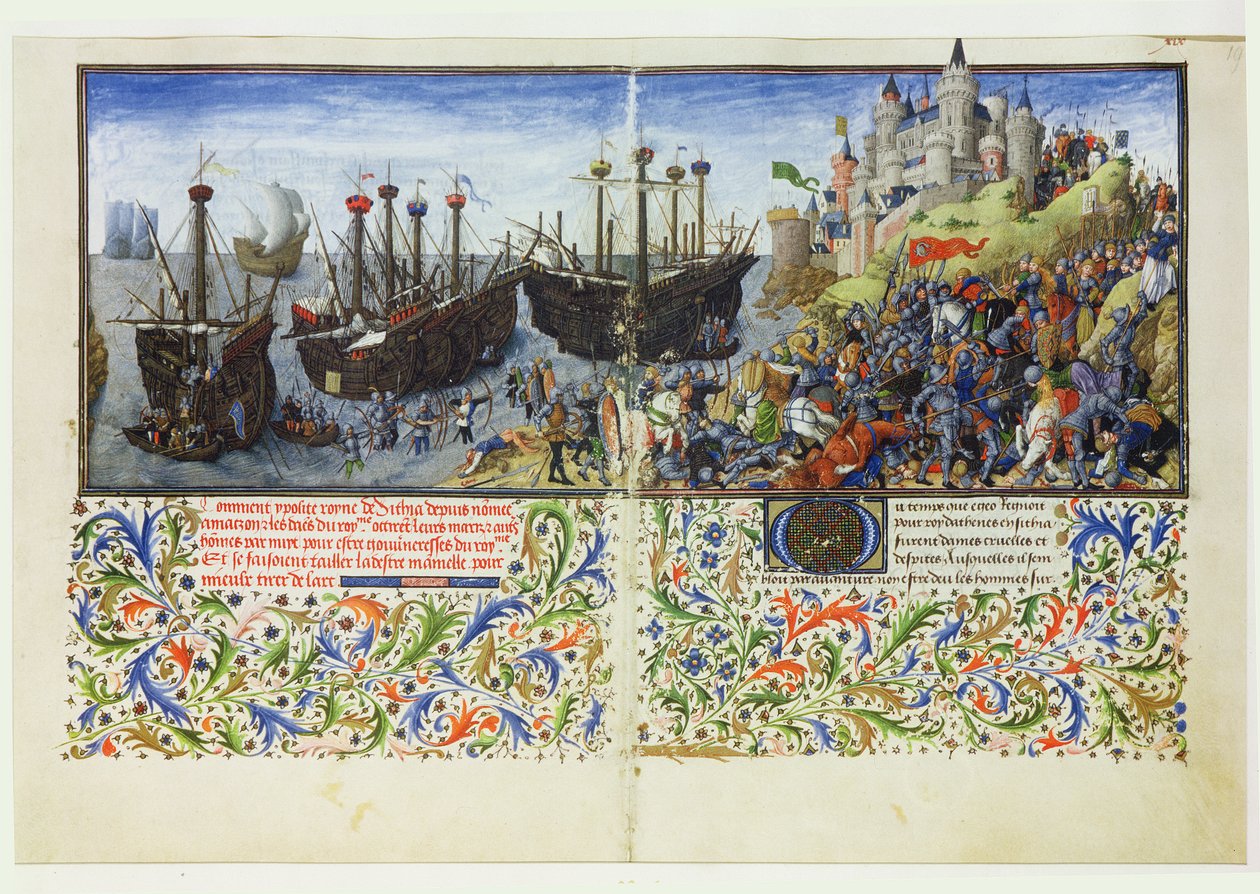 xix
19
Comment ypolite royne de Sithia depuis nõmee
amazon⁊ les dães du roy.me octrēt leurs mariz ⁊ autrs
hõmes par mire pour estre gouuerneresses du roy.me
Et se faisoient tailler la destre mamelle pour
mieulx tirer de lart
Ou temps que egeo Regnoit
pour roy dathenes en sithia
furent dames cruelles et
despites Ausquelles il sem
bloit par auanture non estre deu les hommes sur